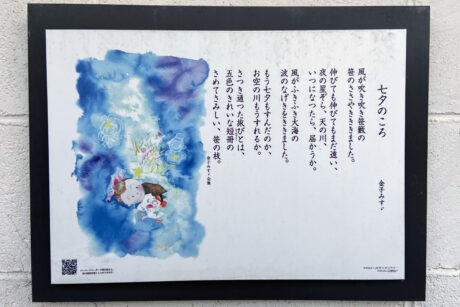 七夕のころ
金子みすゞ
風が吹き吹き笹藪の
笹のささやきききました。
伸びても伸びてもまだ遠い、
夜の星ぞら、天の川、
いつになったら、届かうか。
風がふきふき大海の
波のなげきをききました。
もう七夕もすんだのか、
お空の川もうすれるか。
さつき通った旅びとは、
五色のきれいな短冊の
さめてさみしい、笹の枝。